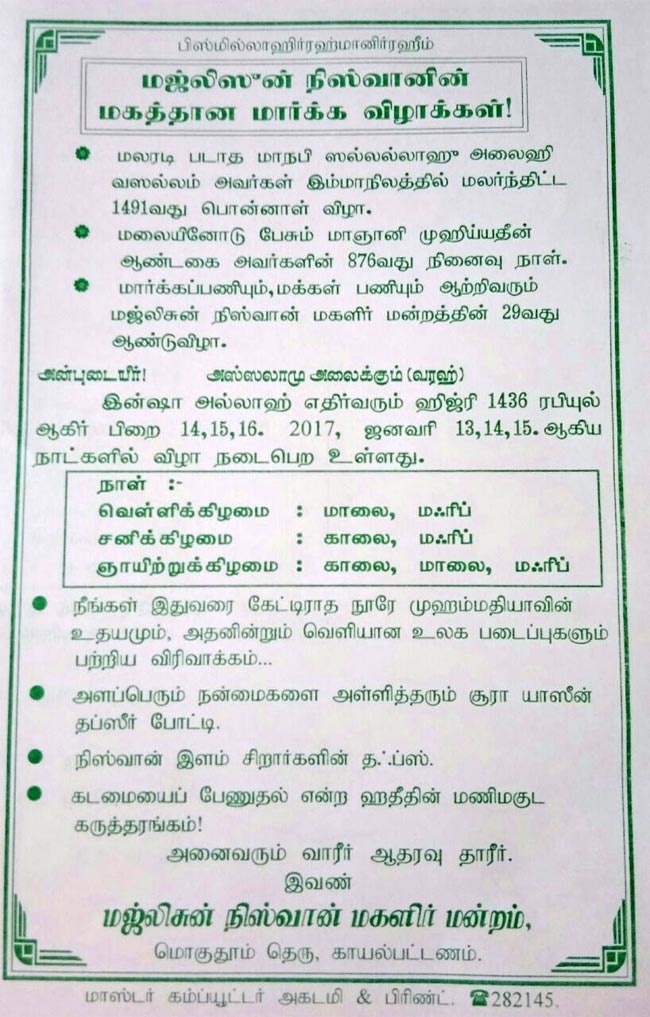 பிஸ்மில்லாஹிர்ரஹ்மானிர்ரஹீம்
மஜ்லிஸுன் நிஸ்வானின்
மகத்தான மார்க்க விழாக்கள்!
மலரடி படாத மாநபி ஸல்லல்லாஹு அலைஹி
வஸல்லம் அவர்கள் இம்மாநிலத்தில் மலர்ந்திட்ட
1491வது பொன்னாள் விழா.
மலையினோடு பேசும் மாஞானி முஹிய்யதீன்
ஆண்டகை அவர்களின் 876வது நினைவு நாள்.
மார்க்கப்பணியும், மக்கள் பணியும் ஆற்றிவரும்
மஜ்லிசுன் நிஸ்வான் மகளிர் மன்றத்தின் 29வது
ஆண்டுவிழா.
அன்புடையீர்! அஸ்ஸலாமு அலைக்கும் (வரஹ்)
இன்ஷா அல்லாஹ் எதிர்வரும் ஹிஜ்ரி 1436 ரபியுல்
ஆகிர் பிறை 14,15,16. 2017, ஜனவரி 13,14,15. ஆகிய
நாட்களில் விழா நடைபெற உள்ளது.
நாள் :-
வெள்ளிக்கிழமை : மாலை, மஃரிப்
சனிக்கிழமை : காலை, மஃரிப்
ஞாயிற்றுக்கிழமை : காலை, மாலை, மஃரிப்
நீங்கள் இதுவரை கேட்டிராத நூரே முஹம்மதியாவின்
உதயமும், அதனின்றும் வெளியான உலக படைப்புகளும்
பற்றிய விரிவாக்கம்...
அளப்பெரும் நன்மைகளை அள்ளித்தரும் சூரா யாஸீன்
தப்ஸீர் போட்டி.
நிஸ்வான் இளம் சிறார்களின் தஃப்ஸ்.
கடமையைப் பேணுதல் என்ற ஹதீதின் மணிமகுட
கருத்தரங்கம்!
அனைவரும் வாரீர் ஆதரவு தாரீர்.
இவண்
மஜ்லிசுன் நிஸ்வான் மகளிர் மன்றம்,
மொகுதூம் தெரு, காயல்பட்டணம்.
மாஸ்டர் கம்ப்யூட்டர் அகடமி & பிரிண்ட். ☎282145.